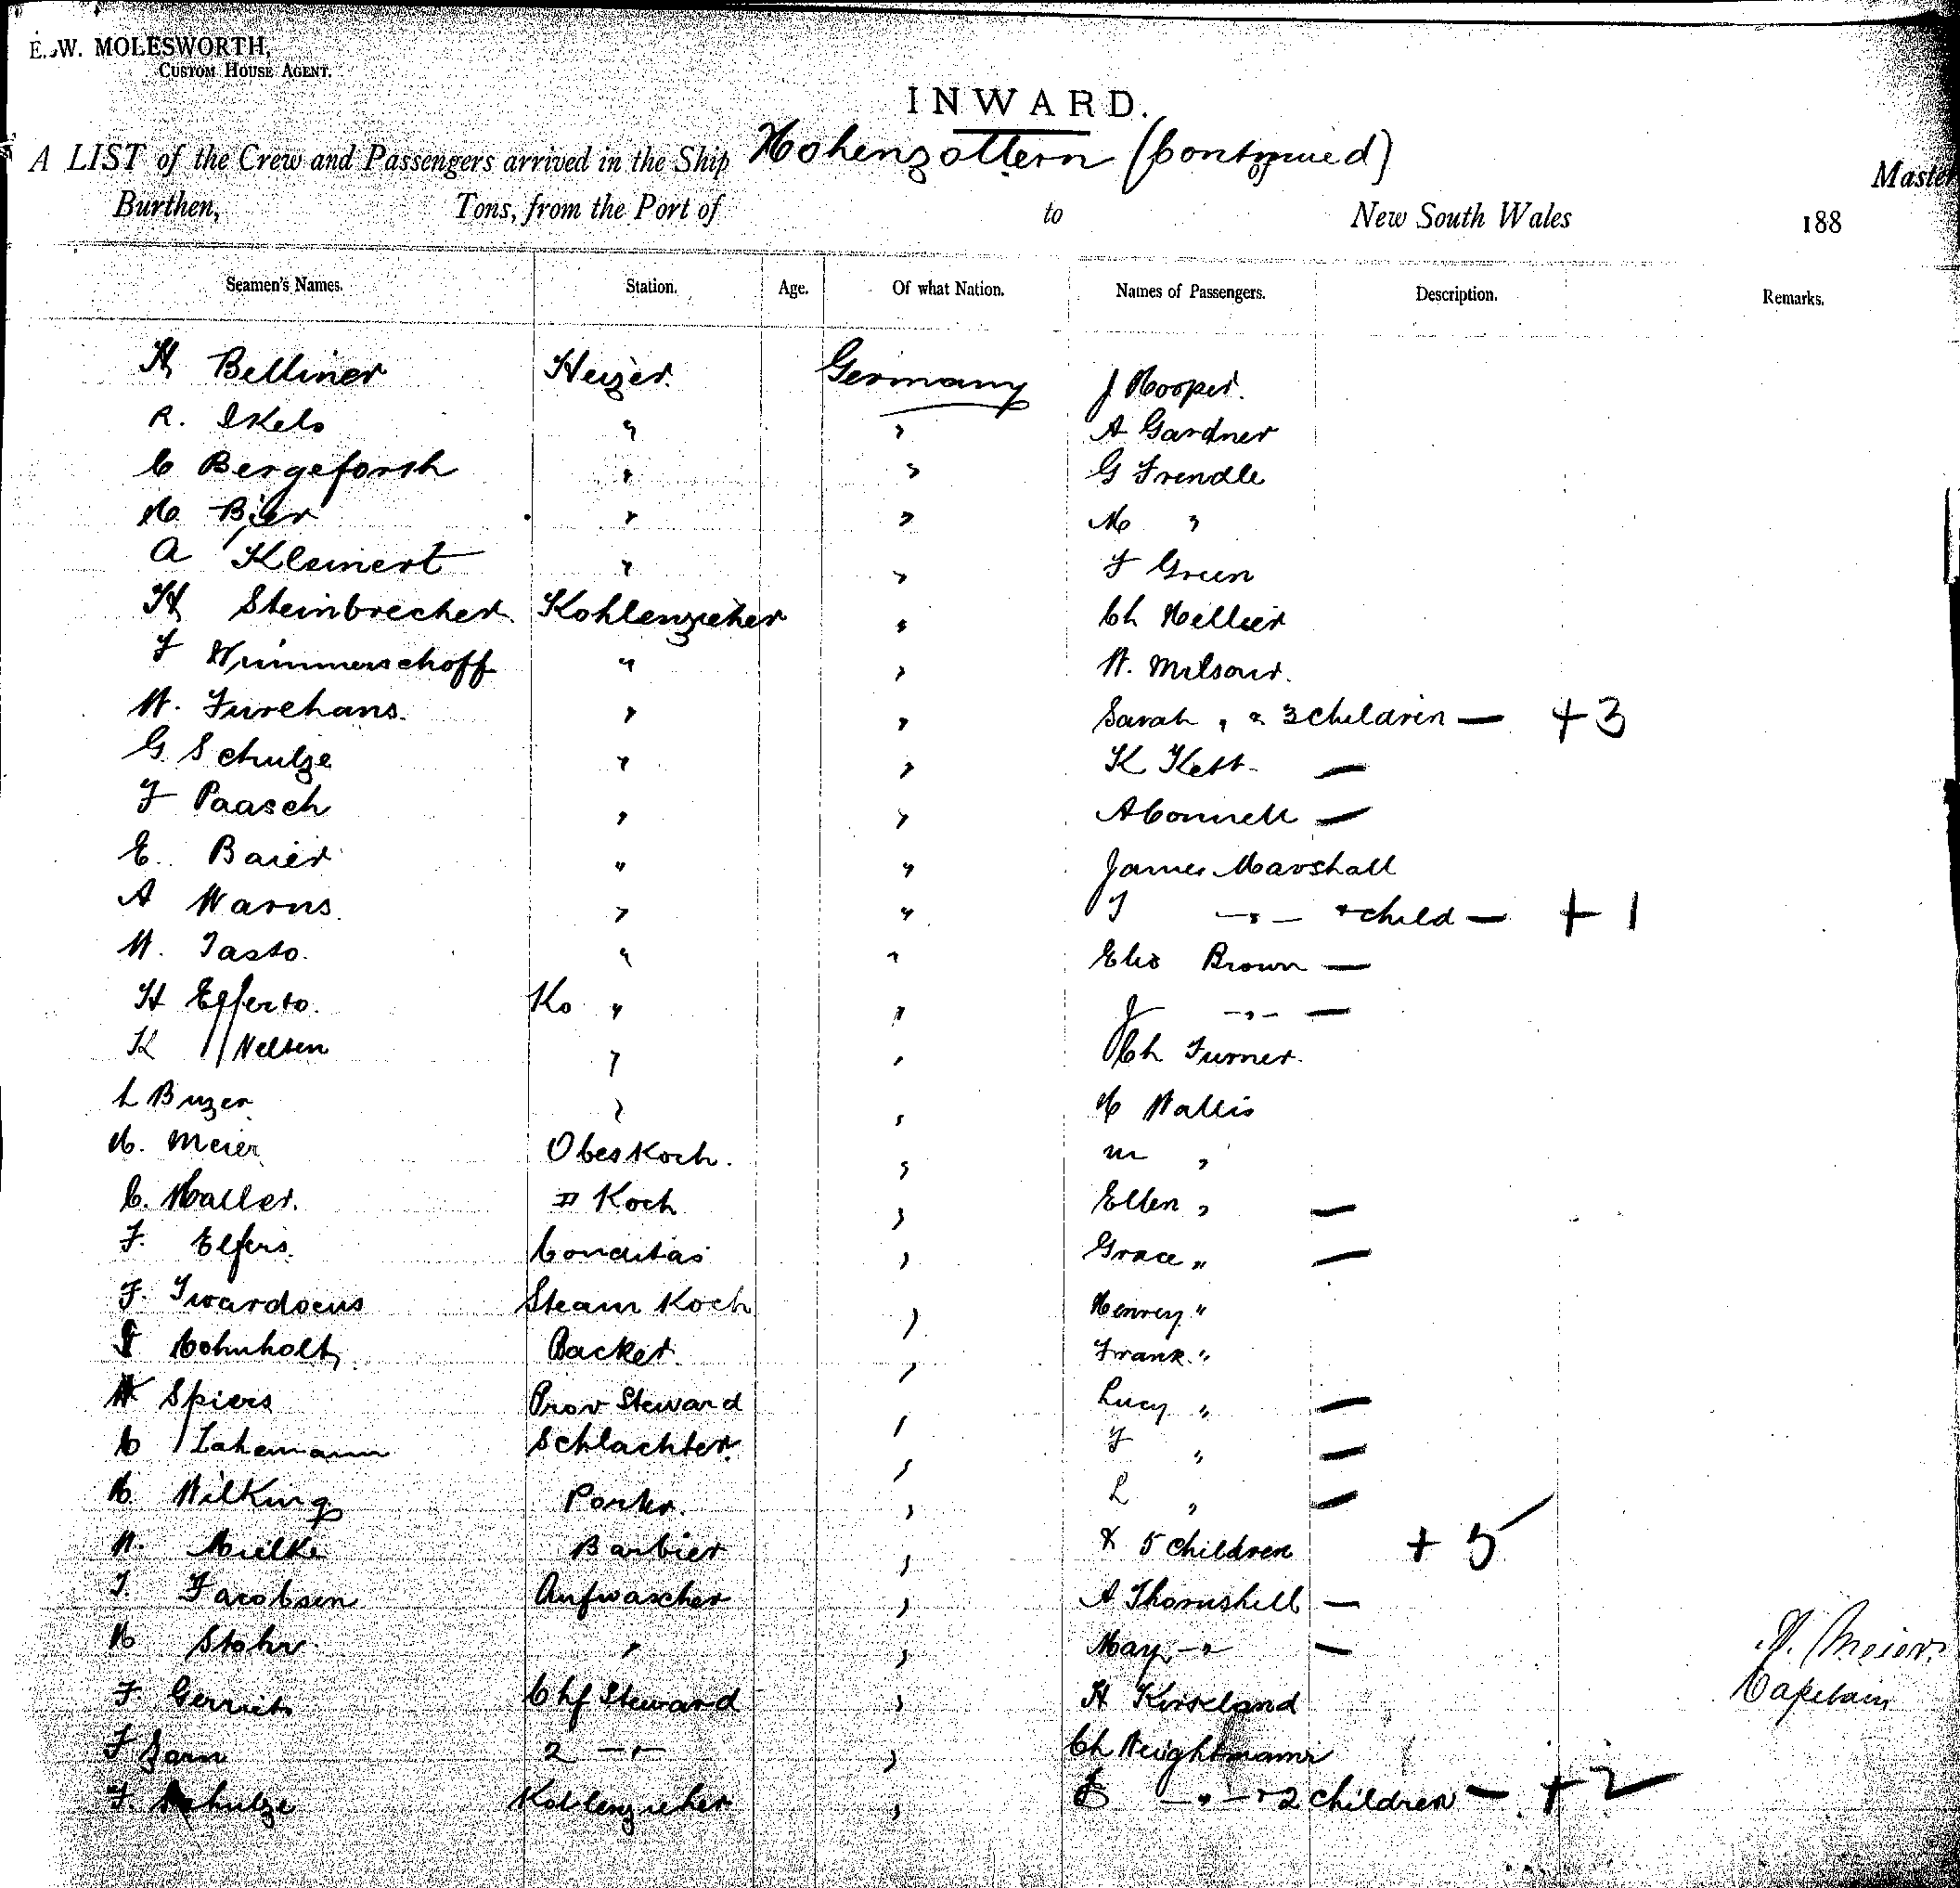 E. W. MOLESWORTH,
CUSTOM HOUSE AGENT.
INWARD.
A LIST of the Crew and Passengers arrived in the Ship Hohenzollern (Continued) of Master
Burthen, Tons, from the Port of to New South Wales 188
Seamen's Names. Station. Age. Of what Nation. Names of Passengers. Description. Remarks.
H Belliner Heizer. Germany J Hooper.
R. Ikels " " A Gardner
C Bergeforth " " G Trendle
H Bier " " M "
A Kleinert " " F Green
H Steinbrecher Kohlenzieher " Ch Hellier
F Wimmerschoff " " W.
W. Furehans. " " Sarah " & 3 children — + 3
G Schulze " " K Kett —
F Paasch " " A Connell —
E. Baier " " James Marshall
A Warns " " J —"— + child — + 1
W. Tasto. " " Eliz Brown —
H Efferts. Ko " " J —"— —
K Nelsen " " Ch Turner
L Buzer " " H Wallis
H. Meier Obeskoch. " M "
C. Haller. II Koch " Ellen " —
F. Elfers. Conditas " Grace " —
F. Steam Koch " Henrey "
Backer. " Frank "
H Spiers Prov Steward " Lucy " —
C Lahemann Schlachter. " F " —
H. Wilking Porter. " L " —
W. Mielke Barbier " & 5 children + 5
J. Jacobsen Aufwascher " A Thornshill —
H Stohr " " May —"— —
F Gerriets Chf Steward " H Kirseland
F Jarn 2 —"— " Ch Weightmann
F. Schulze Kohlenzieher " —"— + 2 children — + 2
H. Meier,
Capetain